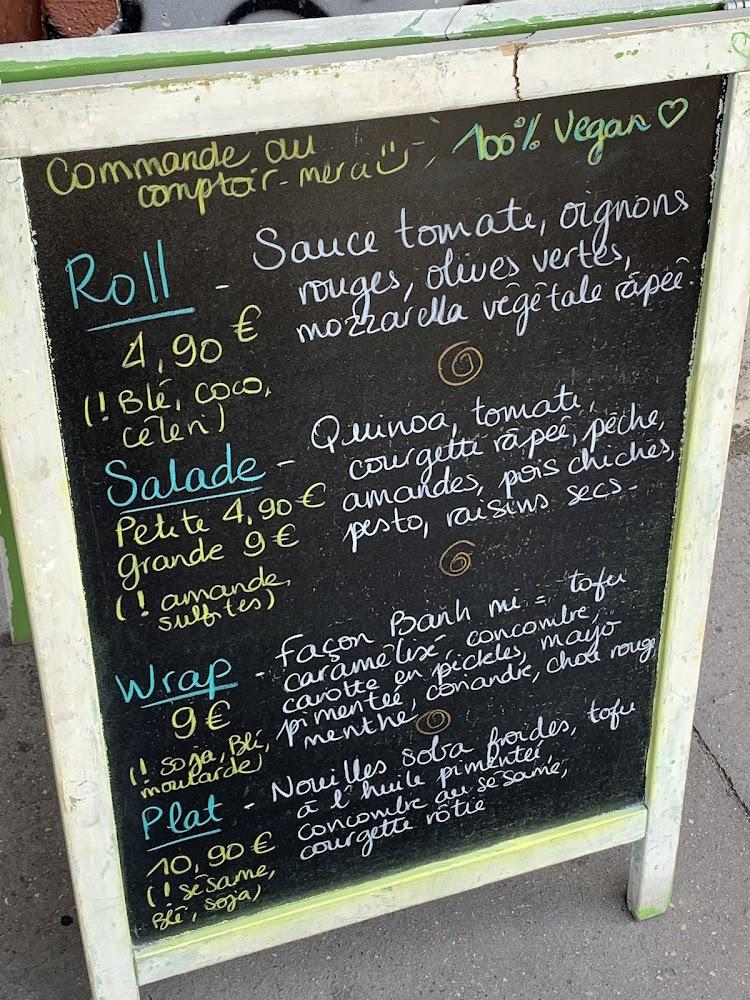 Commande au
comptoir - merci :)
100% Vegan ♡
Roll - Sauce tomate, oignons
rouges, olives vertes,
mozzarella végétale râpée.
4,90 €
(! Blé, coco,
céleri)
Salade - Quinoa, tomate,
courgette râpée, pêche,
amandes, pois chiches,
pesto, raisins secs -
Petite 4,90 €
grande 9 €
(! amande,
sulfites)
Wrap - Façon Banh mi = tofu
caramélisé, concombre,
carotte en pickles, mayo
pimentée, coriandre, chou rouge
menthe
9 €
(! soja, Blé,
moutarde)
Plat - Nouilles soba froides, tofu
à l'huile pimentée,
concombre au sésame,
courgette rôtie
10,90 €
(! sésame,
Blé, soja)